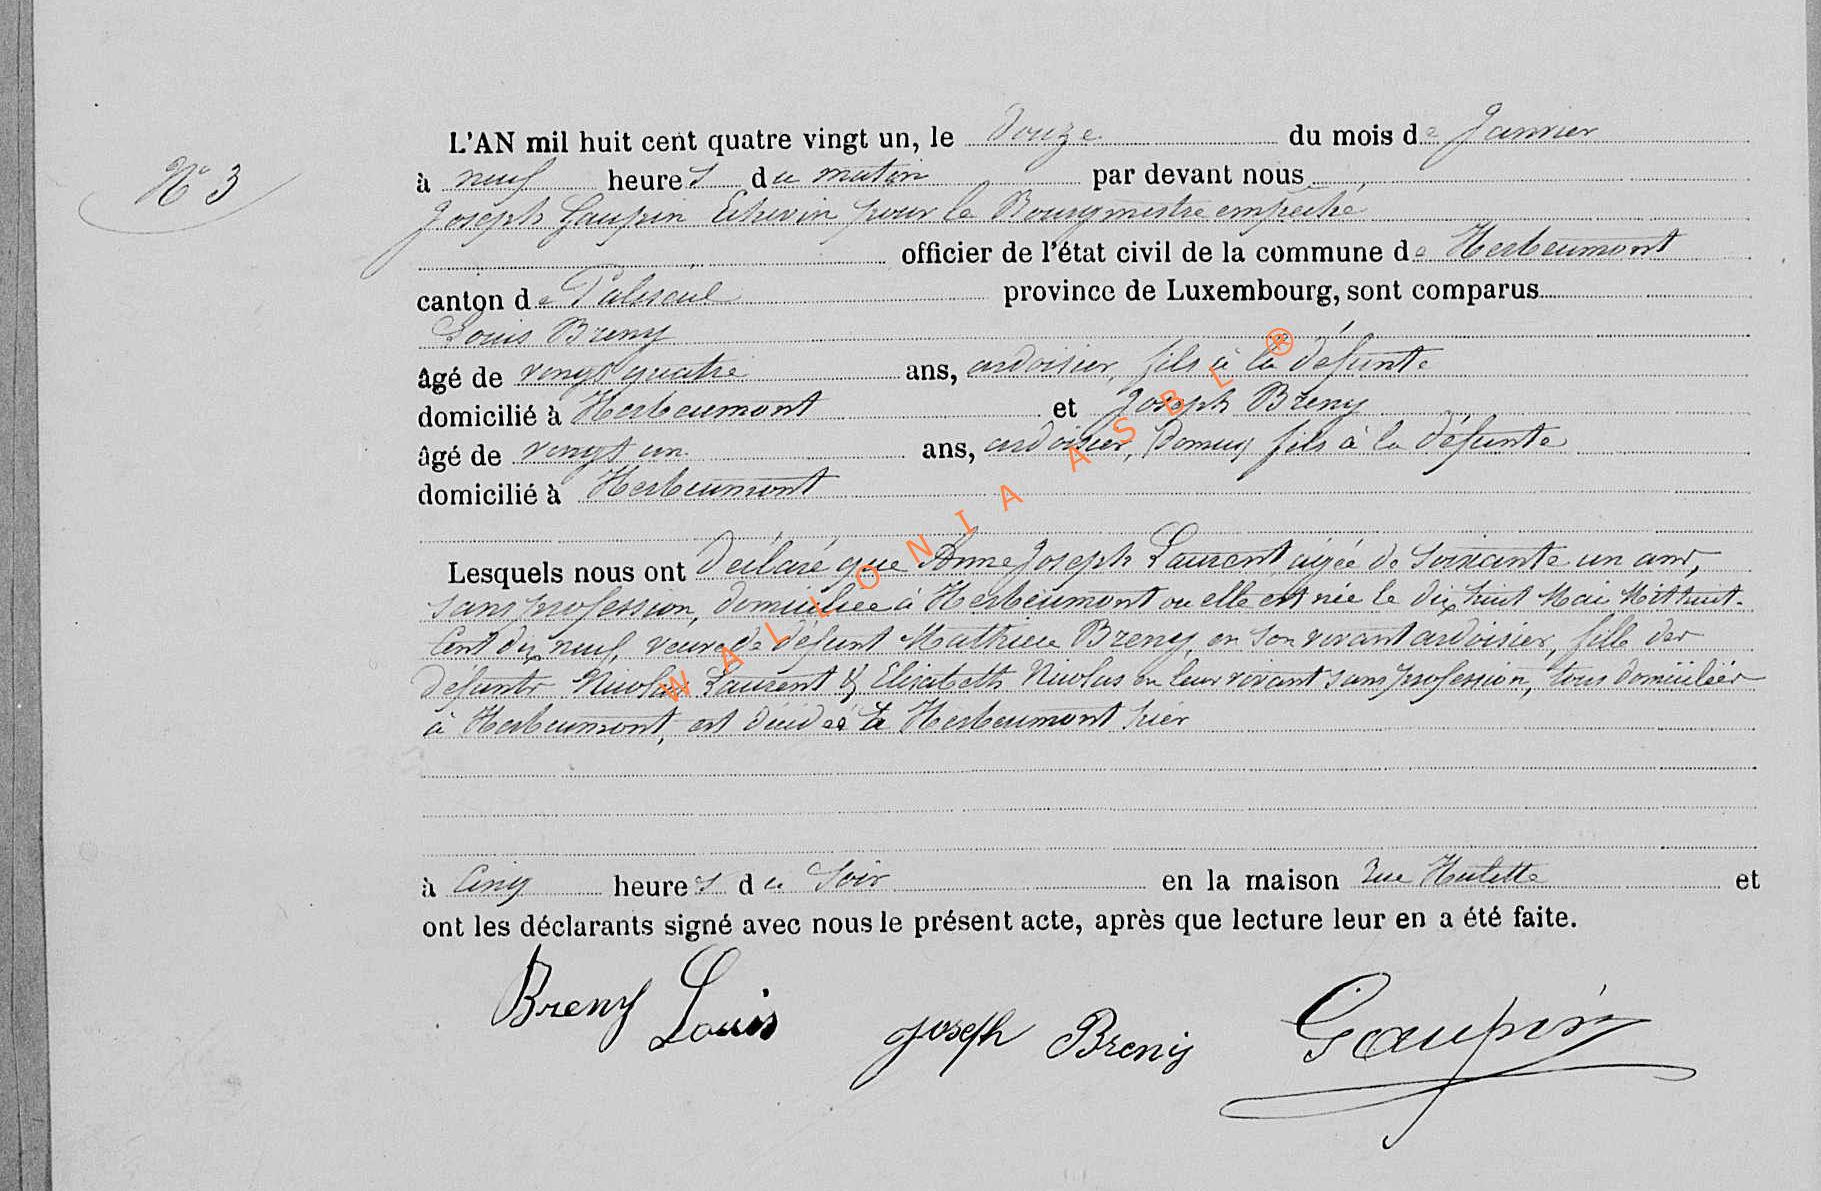 N° 3
L'AN mil huit cent quatre vingt un, le Douze du mois de Janvier
à neuf heures du matin par devant nous
Joseph Gaupin Echevin pour le Bourgmestre empêché
officier de l'état civil de la commune de Herbeumont
canton de Paliseul province de Luxembourg, sont comparus
Louis Breny
âgé de vingt quatre ans, ardoisier, fils à la défunte
domicilié à Herbeumont et Joseph Breny
âgé de vingt un ans, ardoisier, fils à la défunte
domicilié à Herbeumont
Lesquels nous ont Déclaré que Anne Joseph Laurent agée de soixante un ans,
sans profession, domiciliée à Herbeumont ou elle est née le dix huit Mai Mil huit-
Cent dix neuf, veuve de défunt Mathieu Breny, en son vivant ardoisier, fille des
défunts Nicolas Laurent & Elisabeth Nicolas en leur vivant sans profession, tous domiciliés
à Herbeumont, est décidée à Herbeumont hier
à Cinq heures du Soir en la maison rue Hulette et
ont les déclarants signé avec nous le présent acte, après que lecture leur en a été faite.
Breny Louis Joseph Breny Gaupin
WALLONIA ASBL®